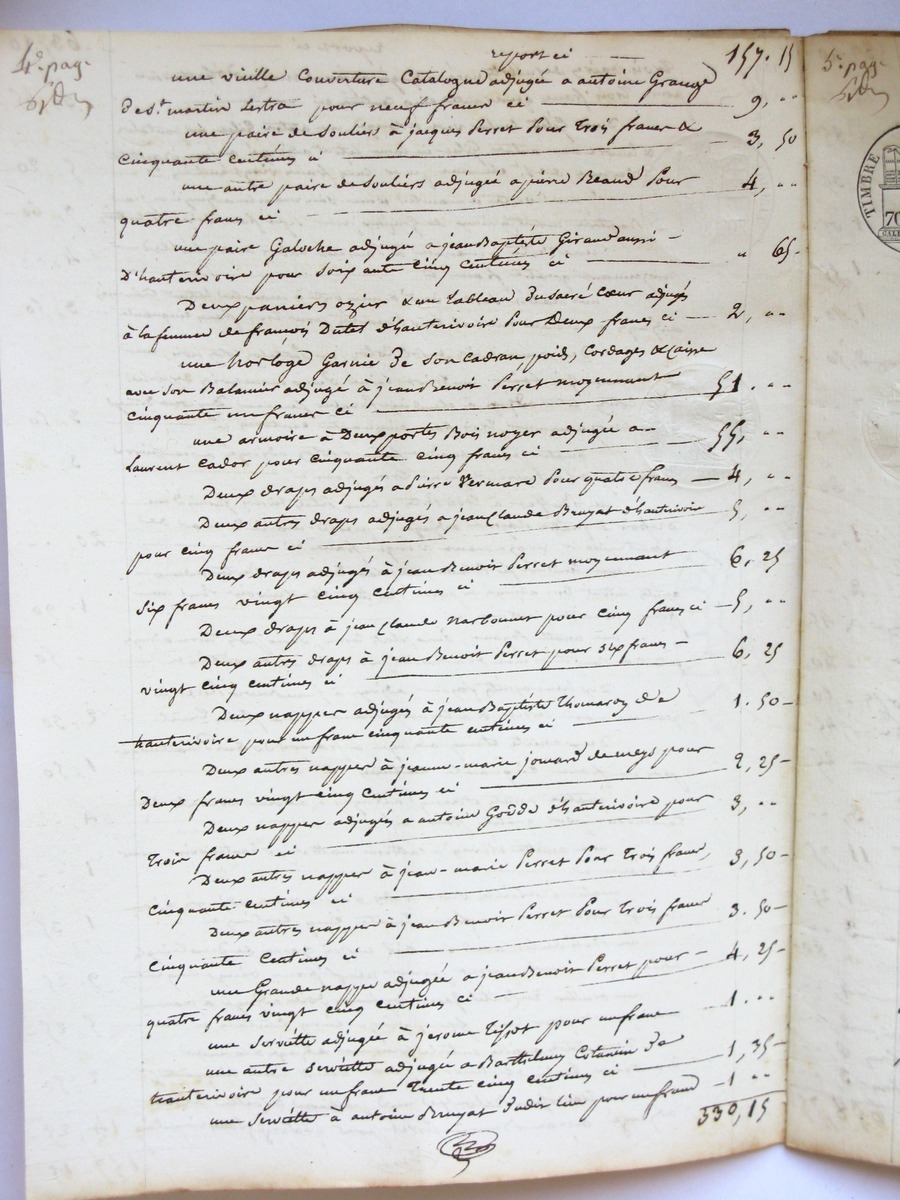 4e. pag.
report ci — 157. 15
une vieille Couverture Catalogne adjugée a antoine Grange
de st. martin Lestra pour neuf francs ci — 9, "
une paire de Souliers à jacques Perret Pour Trois francs &
Cinquante Centimes ci — 3, 50
une autre paire de Souliers adjugée a pierre Beaud Pour
quatre francs ci — 4, "
une paire Galoche adjugé a jean Baptiste Giraud aussi —
D'hauterivoire pour Soixante Cinq Centimes ci — " 65 -
Deux paniers ozier & un Tableau Du sacré Cœur adjugés
à la femme de francois Dutel d'hauterivoire Pour Deux francs ci — 2, "
une horloge Garnie De Son Cadran poids, Cordages & Caisse
avec Son Balancier adjugé à jean Benoit Perret moyennant
Cinquante un francs ci — 51. "
une armoire à Deux portes Bois noyer adjugée a —
Laurent Cador pour Cinquante Cinq francs ci — 55, "
Deux draps adjugés a Pierre Vermare Pour quatre francs — 4, "
Deux autres draps adjugés a jean Claude Bruyat d'hauterivoire
pour Cinq francs ci — 5, "
Deux draps adjugés à jean Benoit Perret moyennant
Six francs vingt Cinq Centimes ci — 6, 25
Deux draps à jean Claude Narbonnet pour Cinq francs ci — 5, "
Deux autres draps à jean Benoit Perret pour six francs —
vingt Cinq Centimes ci — 6, 25
Deux nappes adjugés à jean Baptiste Thomaron d'e
hauterivoire pour un franc Cinquante Centimes ci — 1. 50 -
Deux autres nappes à jeanne-marie jomard de meys pour
Deux francs vingt Cinq Centimes ci — 2, 25 -
Deux nappes adjugés a antoine Godde d'hauterivoire pour
Trois francs ci — 3, "
Deux autres nappes à jean-marie Perret Pour Trois francs,
Cinquante Centimes ci — 3, 50 -
Deux autres nappes à jean Benoit Perret Pour Trois francs
Cinquante Centimes ci — 3. 50 -
une Grande nappe adjugée a jean Benoit Perret pour —
quatre francs vingt Cinq Centimes ci — 4, 25 -
une Serviette adjugé à jerome Tissot pour un franc — 1. "
une autre Serviette adjugée a Barthelemy Cotancin De
hauterivoire pour un franc Trente Cinq Centimes ci — 1, 35 -
une Serviette à antoine Bruyat Dudit lieu pour un franc — 1 "
330, 15
5e. pag.
TIMBRE
70